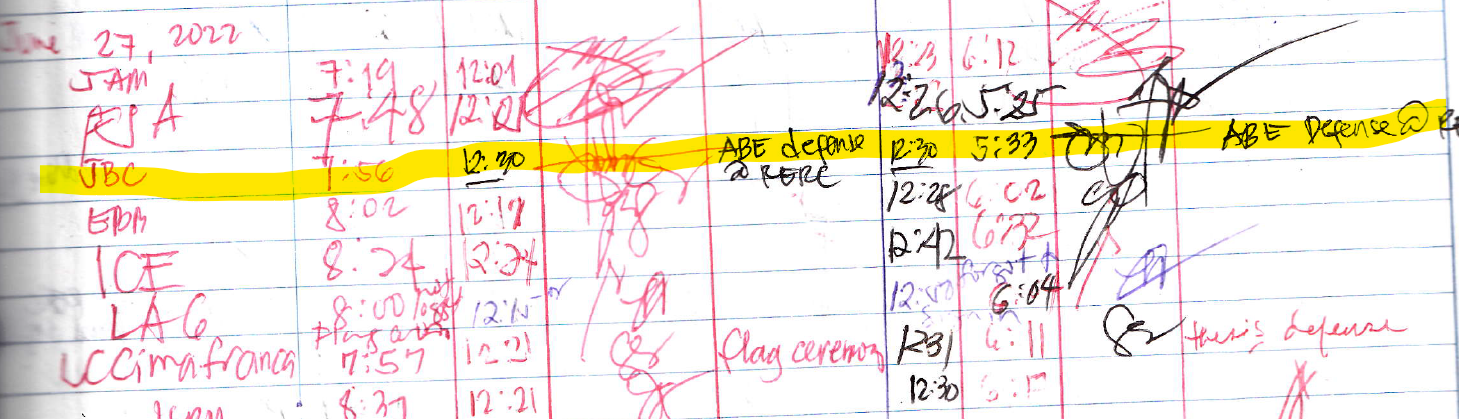 June 27, 2022
JAM 7:19 12:01 6:12
7:48 12:21 12:26 5:25
JBC 7:56 12:30 ABE defense 12:30 5:33 ABE Defense @
@ RERC
EDA 8:02 12:17 12:28 6:02
ICE 8:24 12:24 12:42 6:32
LAG 8:00 12:15 12:50 6:04
Flag
UCCimafranca 7:57 12:21 Flag ceremony 1231 6:11 thesis defense
8:37 12:21 12:30